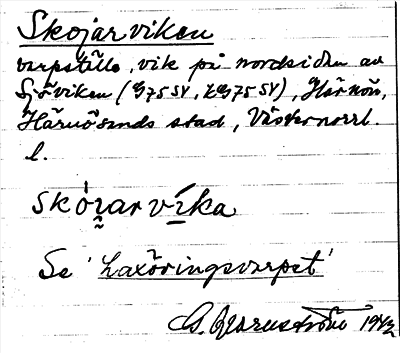 Skojarviken
varpställe, vik på nordsidan av
Sjöviken (G75SV, G75SV), Härnön,
Härnösands stad, Västernorrl.
l.
skói̯ar vī́ka
Se 'Laxöringsvarpet'
1942